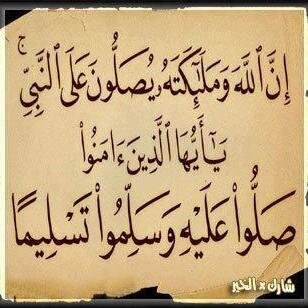 إِنَّ ٱللَّهَ وَمَلَٰٓئِكَتَهُۥ يُصَلُّونَ عَلَى ٱلنَّبِيِّ ۚ
يَٰٓأَيُّهَا ٱلَّذِينَ ءَامَنُوا۟
صَلُّوا۟ عَلَيْهِ وَسَلِّمُوا۟ تَسْلِيمًا
شارك x الخير